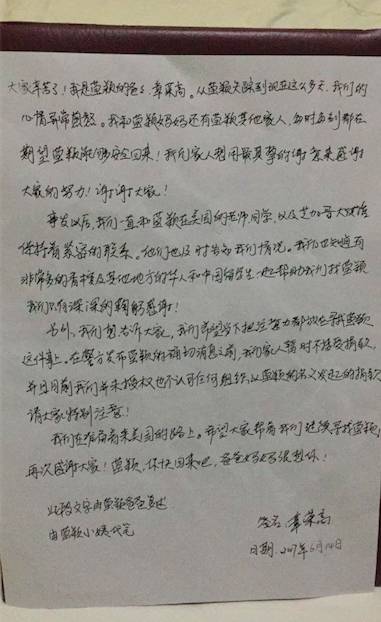 大家辛苦了！我是莹颖的爸爸章荣高。从莹颖失踪到现在这么多天，我们的
心情异常煎熬。我和莹颖妈妈还有莹颖其他家人，每时每刻都在
期望莹颖能够安全回来！我们家人想用最真挚的谢意来感谢
大家的努力！谢谢大家！
事发以后，我们一直和莹颖在美国的老师同学，以及芝加哥大使馆
保持着紧密的联系。他们也及时告知我们情况。我们也知道有
非常多的香槟及其他地方的华人和中国留学生一起帮助我们找莹颖
我们只有深深的鞠躬感谢！
另外，我们想告诉大家，我们希望当下把注意力都放在寻找莹颖
这件事上，在警方发布莹颖的确切消息之前，我们家人暂时不接受捐款，
并且目前我们并未授权也不认可任何组织以莹颖的名义发起的捐款
请大家特别注意！
我们正在准备来美国的路上。希望大家帮着我们继续寻找莹颖！
再次感谢大家！莹颖，你快回来吧，爸爸妈妈很想你！
此段文字由莹颖爸爸复述
由莹颖小姨代笔
签名 章荣高
日期：2017年6月14日